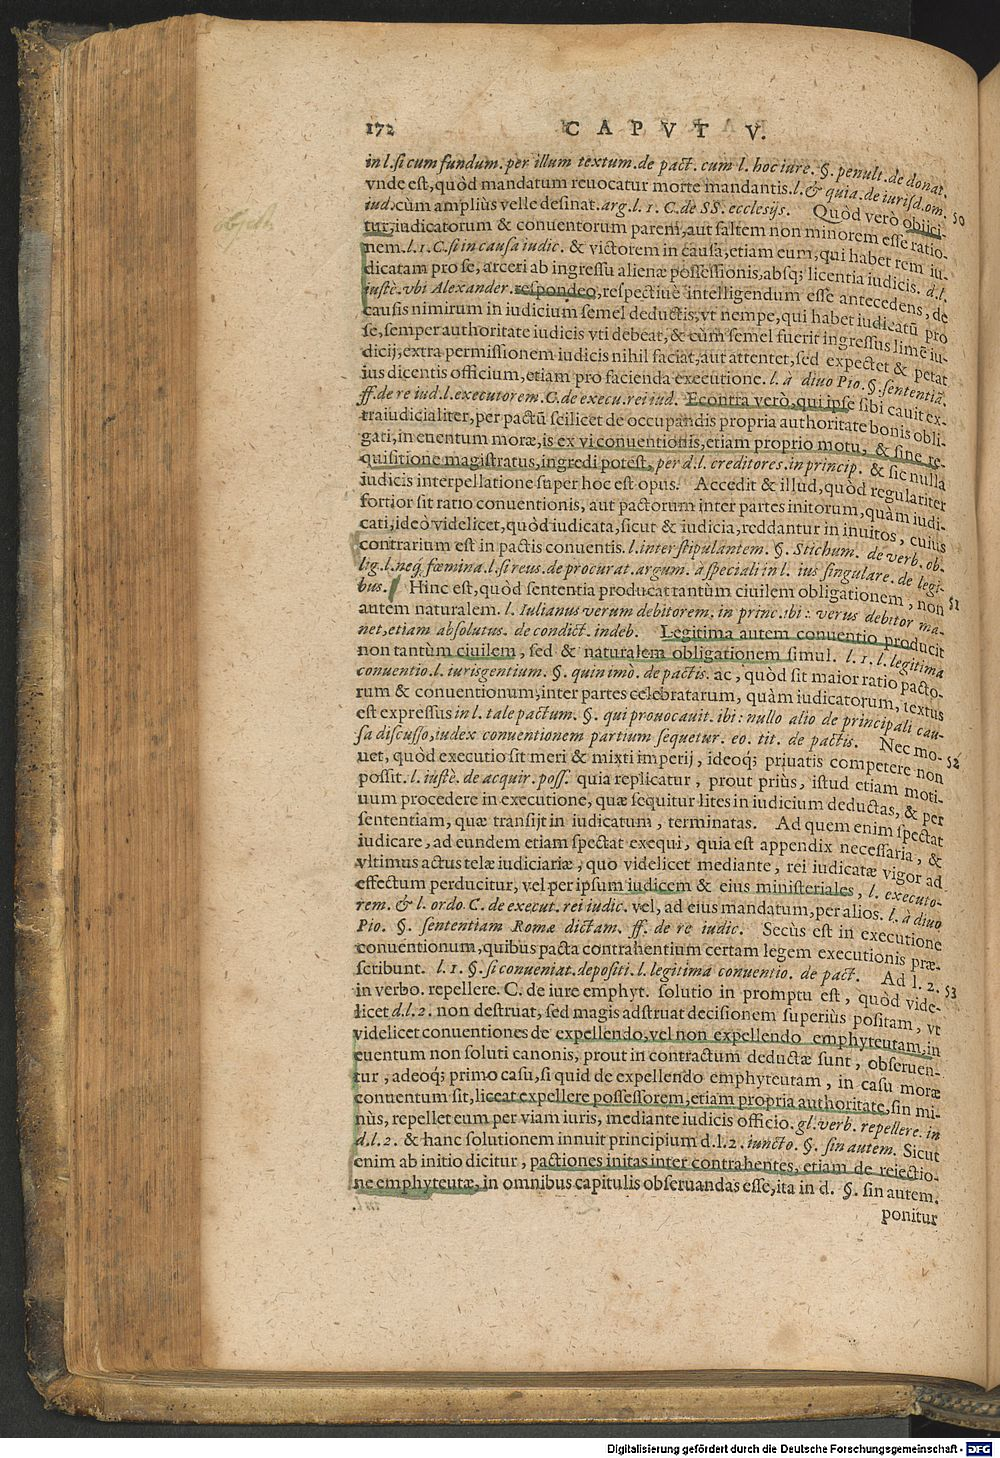 172 CAPVT V.
in l. si cum fundum. per illum textum. de pact. cum l. hoc iure. §. penult. de donat.
vnde est, quòd mandatum reuocatur morte mandantis. l. & quia. de iurisd. om.
iud. cùm ampliùs velle desinat. arg. l. 1. C. de SS. ecclesijs. Quòd verò obijci- 50
tur, iudicatorum & conuentorum parem, aut saltem non minorem esse ratio-
nem. l. 1. C. si in causa iudic. & victorem in causa, etiam eum, qui habet rem iu-
dicatam pro se, arceri ab ingressu alienæ possessionis, absq; licentia iudicis. d. l.
iustè. vbi Alexander. respondeo, respectiuè intelligendum esse antecedens, de
causis nimirum in iudicium semel deductis, vt nempe, qui habet iudicatũ pro
se, semper authoritate iudicis vti debeat, & cùm semel fuerit ingressus limẽ iu-
dicij, extra permissionem iudicis nihil faciat, aut attentet, sed expectet & petat
ius dicentis officium, etiam pro facienda executione. l. à diuo Pio. §. sententiã.
ff. de re iud. l. executorem. C. de execu. rei iud. Econtra verò, qui ipse sibi cauit ex-
traiudicialiter, per pactũ scilicet de occupandis propria authoritate bonis obli-
gati, in euentum moræ, is ex vi conuentionis, etiam proprio motu, & sine re-
quisitione magistratus, ingredi potest, per d. l. creditores. in princip. & sic nulla
iudicis interpellatione super hoc est opus. Accedit & illud, quòd regulariter
fortior sit ratio conuentionis, aut pactorum inter partes initorum, quàm iudi-
cati, ideò videlicet, quòd iudicata, sicut & iudicia, reddantur in inuitos, cuius
contrarium est in pactis conuentis. l. inter stipulantem. §. Stichum. de verb. ob-
lig. l. neq; fœmina. l. si reus. de procurat. argum. à speciali in l. ius singulare. de legi-
bus. Hinc est, quòd sententia producat tantùm ciuilem obligationem, non 51
autem naturalem. l. Iulianus verum debitorem. in princ. ibi: verus debitor ma-
net, etiam absolutus. de condict. indeb. Legitima autem conuentio producit
non tantùm ciuilem, sed & naturalem obligationem simul. l. 1. l. legitima
conuentio. l. iurisgentium. §. quin imò. de pactis. ac, quòd sit maior ratio pacto-
rum & conuentionum, inter partes celebratarum, quàm iudicatorum, textus
est expressus in l. tale pactum. §. qui prouocauit. ibi: nullo alio de principali cau-
sa discusso, iudex conuentionem partium sequetur. eo. tit. de pactis. Nec mo- 52
uet, quòd executio sit meri & mixti imperij, ideoq; priuatis competere non
possit. l. iustè. de acquir. poss. quia replicatur, prout priùs, istud etiam moti-
uum procedere in executione, quæ sequitur lites in iudicium deductas, & per
sententiam, quæ transijt in iudicatum, terminatas. Ad quem enim spectat
iudicare, ad eundem etiam spectat exequi, quia est appendix necessaria, &
vltimus actus telæ iudiciariæ, quo videlicet mediante, rei iudicatæ vigor ad
effectum perducitur, vel per ipsum iudicem & eius ministeriales, l. executo-
rem. & l. ordo. C. de execut. rei iudic. vel, ad eius mandatum, per alios. l. à diuo
Pio. §. sententiam Romæ dictam. ff. de re iudic. Secùs est in executione
conuentionum, quibus pacta contrahentium certam legem executionis præ-
scribunt. l. 1. §. si conueniat. depositi. l. legitima conuentio. de pact. Ad l. 2. 53
in verbo. repellere. C. de iure emphyt. solutio in promptu est, quòd vide-
licet d. l. 2. non destruat, sed magis adstruat decisionem superiùs positam, vt
videlicet conuentiones de expellendo, vel non expellendo emphyteutam, in
euentum non soluti canonis, prout in contractum deductæ sunt, obseruen-
tur, adeoq; primo casu, si quid de expellendo emphyteutam, in casu moræ
conuentum sit, liceat expellere possessorem, etiam propria authoritate, sin mi-
nùs, repellet eum per viam iuris, mediante iudicis officio. gl. verb. repellere. in
d. l. 2. & hanc solutionem innuit principium d. l. 2. iuncto. §. sin autem. Sicut
enim ab initio dicitur, pactiones initas inter contrahentes, etiam de reiectio-
ne emphyteutæ, in omnibus capitulis obseruandas esse, ita in d. §. sin autem.
ponitur
Digitalisierung gefördert durch die Deutsche Forschungsgemeinschaft - DFG